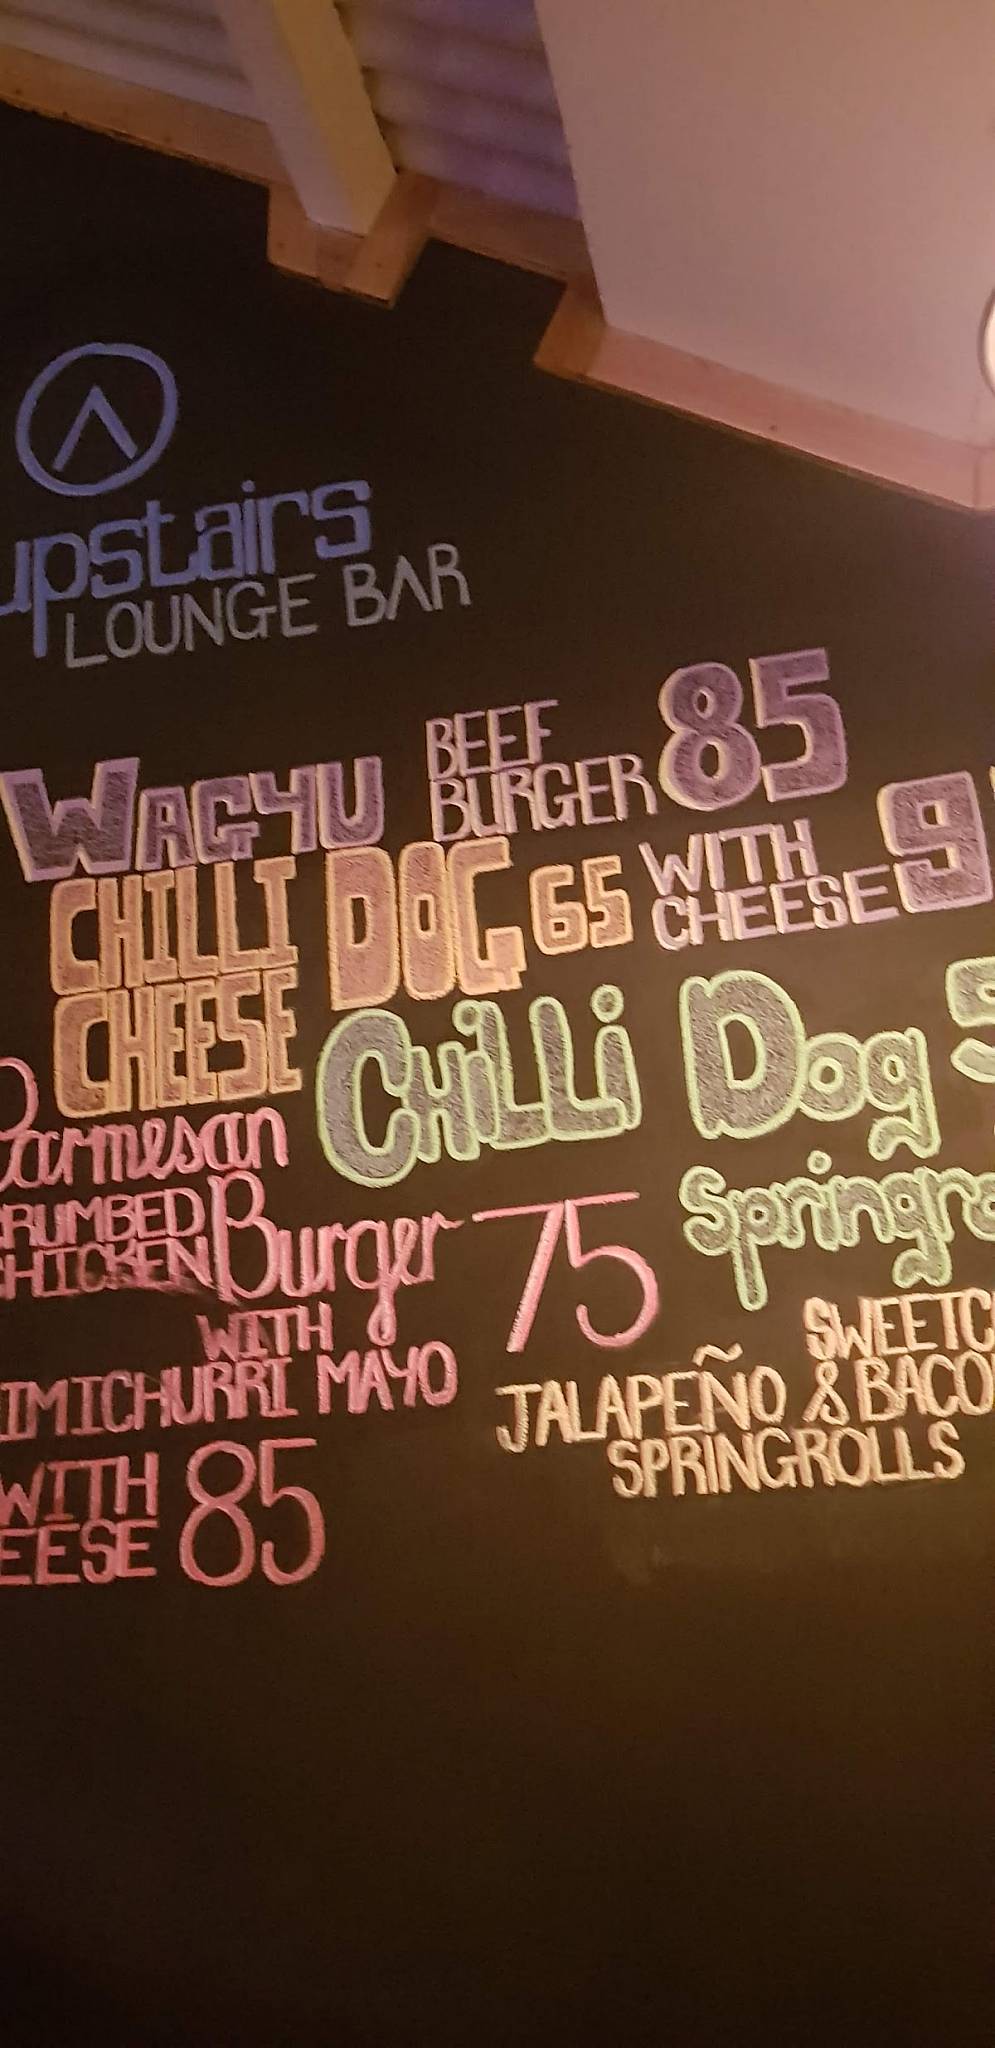 upstairs
LOUNGE BAR
WAGYU BEEF BURGER 85
WITH CHEESE 9
CHILLI CHEESE DOG 65
Chilli Dog
Parmesan
CRUMBED CHICKEN Burger 75
WITH
IMICHURRI MAYO
WITH
EESE 85
Springro
SWEETC
JALAPEÑO & BACO
SPRINGROLLS